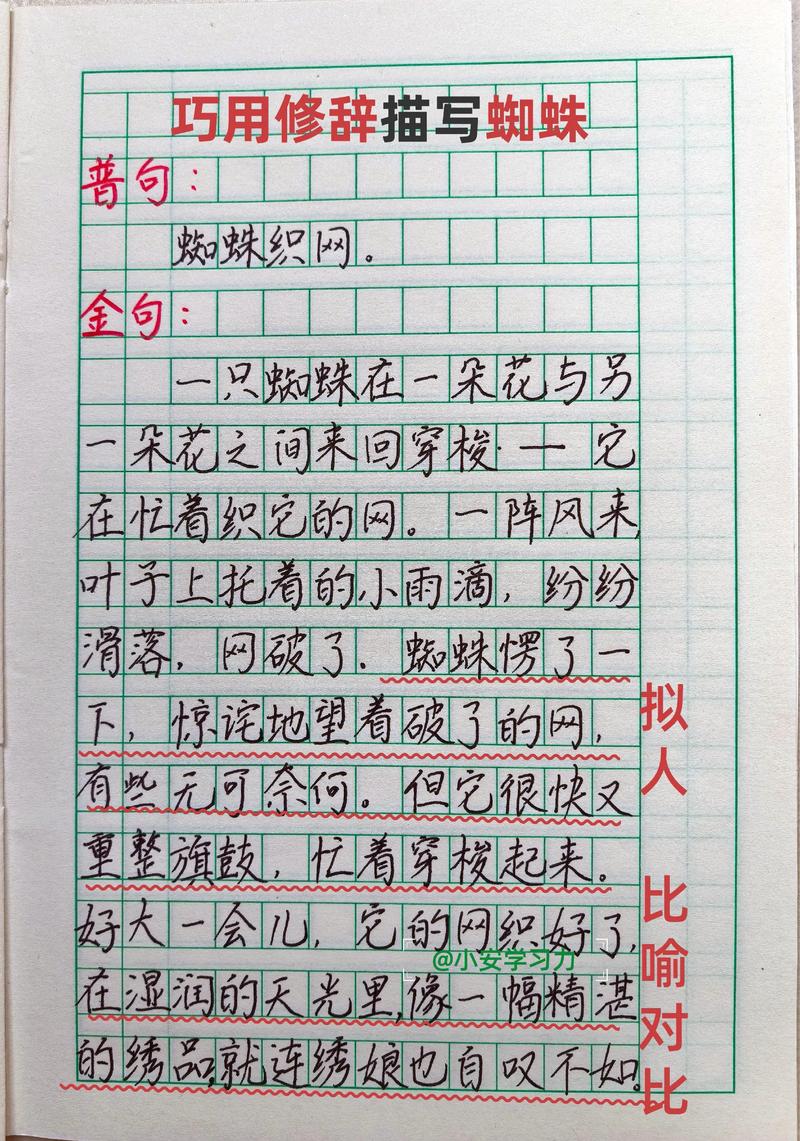 巧用修辞描写蜘蛛
普句：
蜘蛛织网。
金句：
一只蜘蛛在一朵花与另
一朵花之间来回穿梭——它
在忙着织它的网。一阵风来,
叶子上托着的小雨滴，纷纷
滑落，网破了．蜘蛛愣了一
下，惊诧地望着破了的网，
有些无可奈何。但它很快又
重整旗鼓，忙着穿梭起来。
好大一会儿，它的网织好了，
在湿润的天光里,像一幅精湛
的绣品,就连绣娘也自叹不如。
拟人
比喻对比
@小安学习力